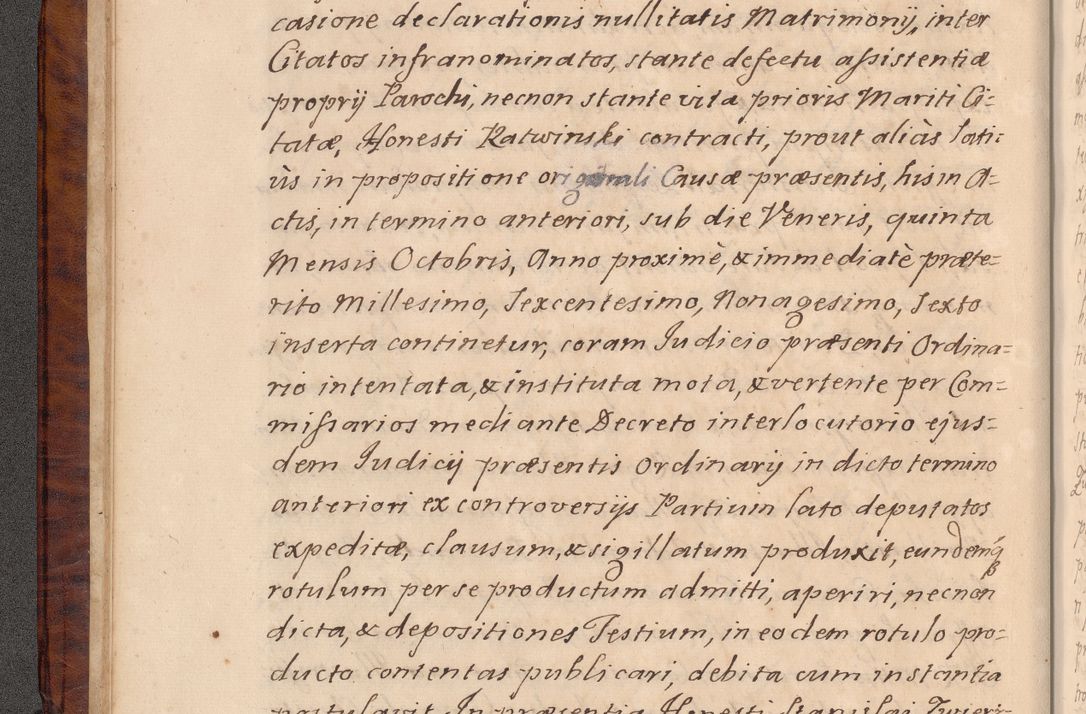 casione declarationis nullitatis Matrimonij, inter
Citatos infranominatos, stante defectu assistentiæ
proprij Parochi, necnon stante vita prioris Mariti Ci=
tatæ, Honesti Ratwinski contracti, prout aliàs lati=
ùs in propositione originali Causæ præsentis, his in A=
ctis, in termino anteriori, sub die Veneris, quinta
Mensis Octobris, Anno proximè, & immediatè præte=
rito Millesimo, Sexcentesimo, Nonagesimo, Sexto
inserta continetur, coram Judicio præsenti Ordina=
rio intentata, & instituta mota, & vertente per Com=
missarios mediante Decreto interlocutorio ejus=
dem Judicij præsentis Ordinarij in dicto termino
anteriori ex controversijs Partium lato deputatos
expeditæ, clausum, & sigillatum produxit, eundemq́
rotulum per se productum admitti, aperiri, necnon
dicta, & depositiones Testium, in eodem rotulo pro=
ducto contentas publicari, debita cum instantia
postulavit. In præsentia Honesti Stanislai